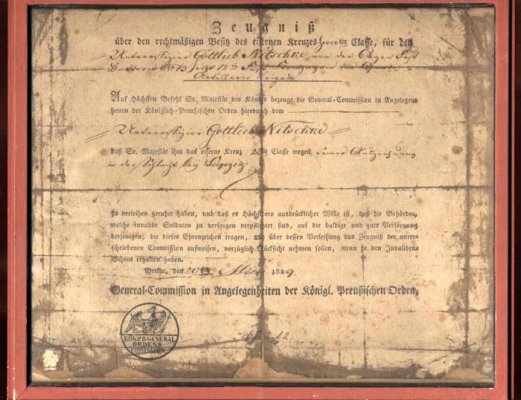 Zeugniß
über den rechtmäßigen Besitz des eisernen Kreuzes zweiter Classe, für den
Unteroffizier Gottlieb Nitschke von der
Artillerie Brigade
Auf höchsten Befehl Sr. Majestät des Königs bezeugt die General-Commission in Angelegen-
heiten der Königlich-Preußischen Orden hierdurch dem
Unteroffizier Gottlieb Nitschke
daß Se. Majestät ihm das eiserne Kreuz 2ter Classe wegen seiner Auszeichnung
in der Schlacht bey Leipzig
zu verleihen geruhet haben, und daß es Höchstdero ausdrücklicher Wille ist, daß die Behörden,
welche invalide Soldaten zu versorgen verpflichtet sind, auf die baldige und gute Versorgung
derjenigen, die dieses Ehrenzeichen tragen, und über dessen Verleihung das Zeugniß der unter-
schriebenen Commission aufweisen, vorzüglich Rücksicht nehmen sollen, wenn sie den Invaliden-
Schein erhalten haben.
Berlin, den 18
General-Commission in Angelegenheiten der Königl. Preußischen Orden.
KÖN. PR. GENERAL
ORDENS
COMMISSION